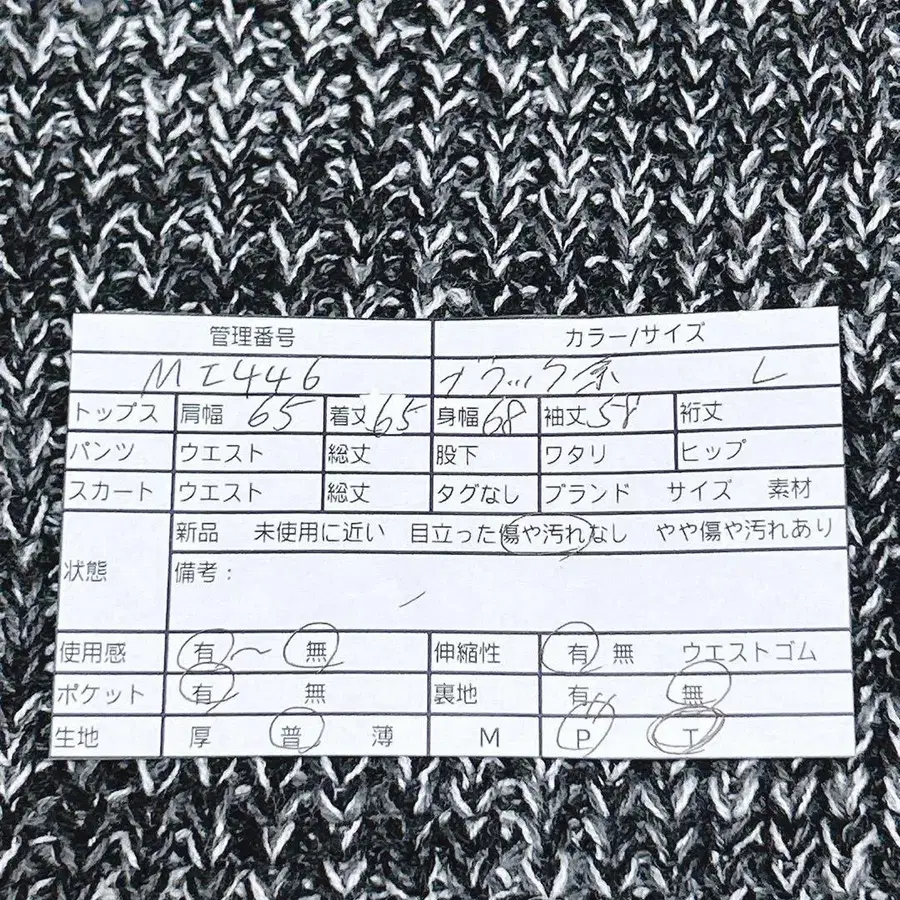 管理番号 カラー/サイズ
MI446 ブラック系 L
トップス 肩幅 65 着丈 65 身幅 68 袖丈 58 裄丈
パンツ ウエスト 総丈 股下 ワタリ ヒップ
スカート ウエスト 総丈 タグなし ブランド サイズ 素材
状態 新品 未使用に近い 目立った傷や汚れなし やや傷や汚れあり
備考:
使用感 有 〜 無 伸縮性 有 無 ウエストゴム
ポケット 有 無 裏地 有 無
生地 厚 普 薄 M P T